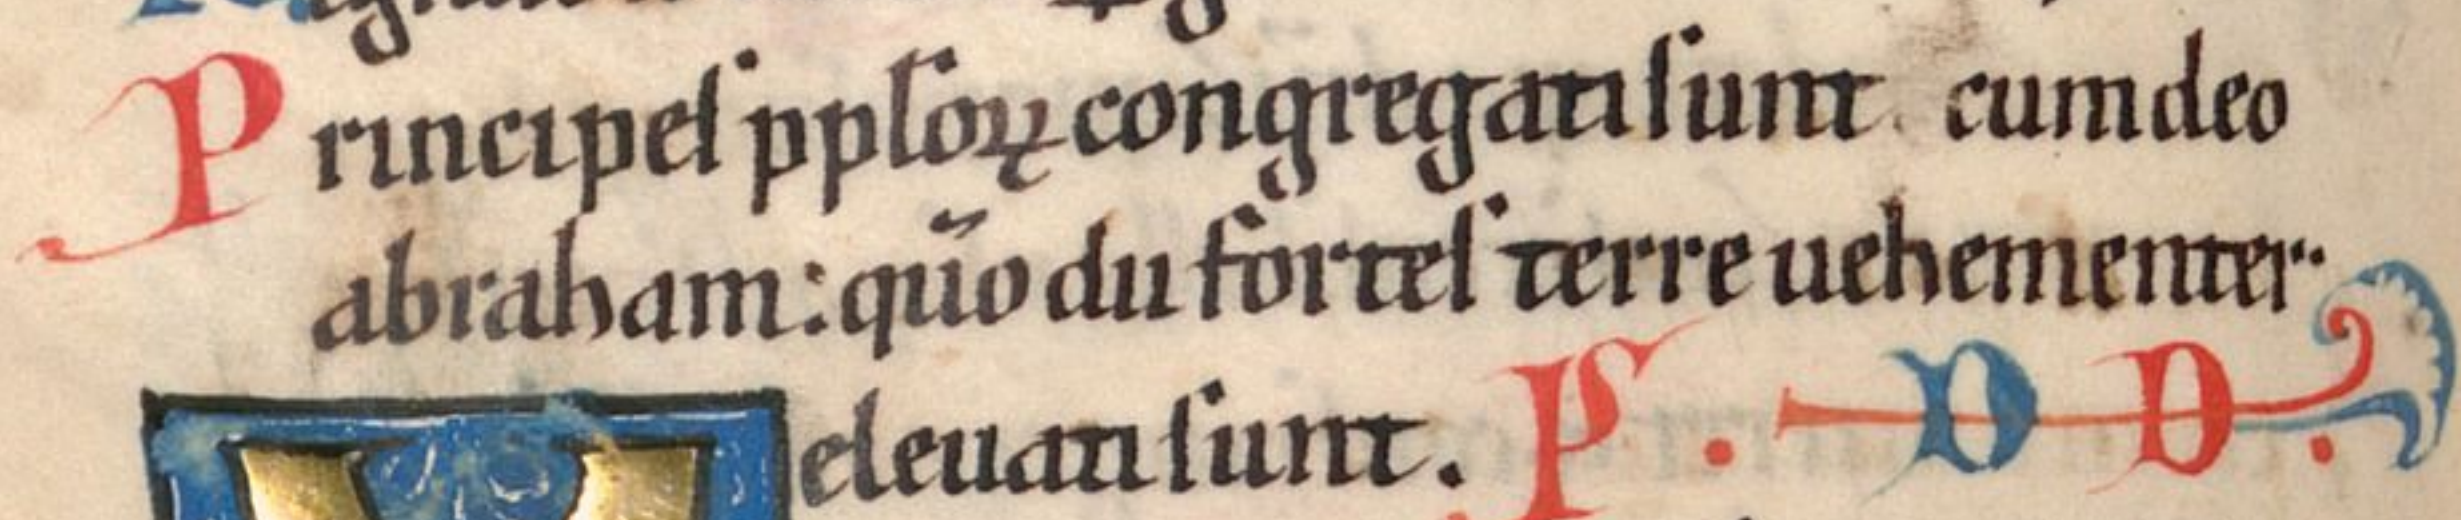 Principeſ pplōꝝ congregati ſunt. cum deo
abraham: qūo dii forteſ terre uehementer
eleuati ſunt. P̄S. D D.